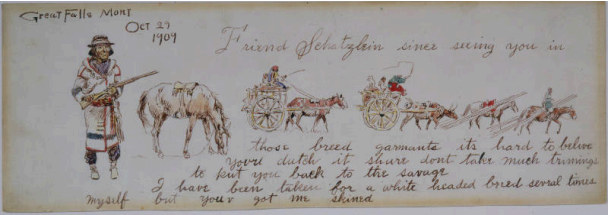 Great Falls Mont
Oct 29
1909
Friend Schatzlein since seeing you in
those breed garmants its hard to belive
your dutch it shure dont take much trimings
to put you back to the savage
I have been taken for a white headed breed serval times
myself but your got me skined